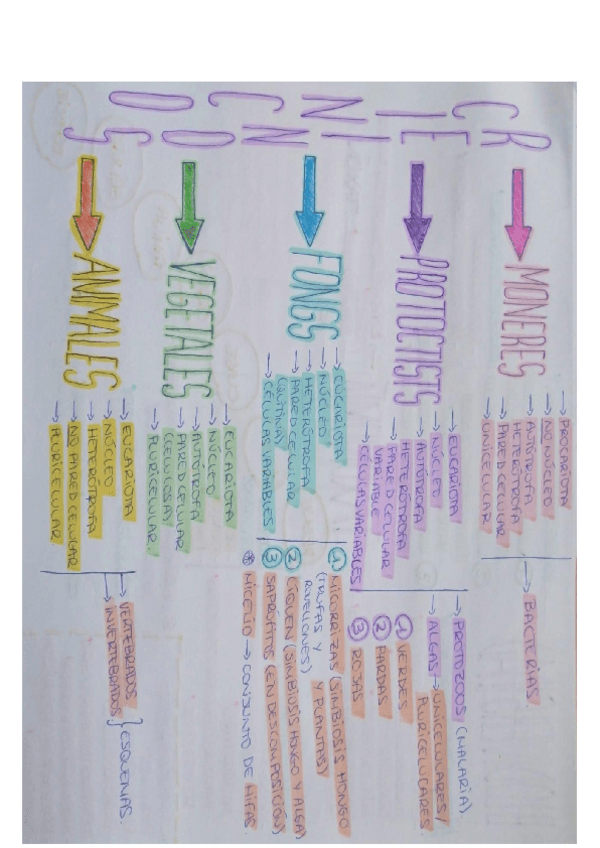 CINCO
REINOS
MONERES
→ PROCARIOTA
→ NO NÚCLEO
→ AUTÓTROFA
HETERÓTROFA
→ PARED CELULAR
→ UNICELULAR
→ BACTERIAS.
PROTOCTISTS
→ EUCARIOTA
→ NÚCLEO
→ AUTÓTROFA
HETERÓTROFA
→ PARED CELULAR
VARIABLE
→ CÉLULAS VARIABLES
→ PROTOZOOS (MALARIA)
→ ALGAS → UNICELULARES/
PLURICELULARES
① VERDES
② PARDAS
③ ROJAS
FONGS
→ EUCARIOTA
→ NÚCLEO
→ HETERÓTROFA
→ PARED CELULAR
(QUITINA)
→ CÉLULAS VARIABLES
① MICORRIZAS (SIMBIOSIS HONGO
(TRUFAS Y Y PLANTAS)
ROVELLONES)
② LIQUEN (SIMBIOSIS HONGO Y ALGA)
③ SAPRÓFITOS (EN DESCOMPOSICIÓN)
* MICELIO → CONJUNTO DE HIFAS
VEGETALES
→ EUCARIOTA
→ NÚCLEO
→ AUTÓTROFA
→ PARED CELULAR
(CELULOSA)
→ PLURICELULAR.
ANIMALES
→ EUCARIOTA
→ NÚCLEO
→ HETERÓTROFA
→ NO PARED CELULAR
→ PLURICELULAR
→ VERTEBRADOS
→ INVERTEBRADOS } ESQUEMAS.